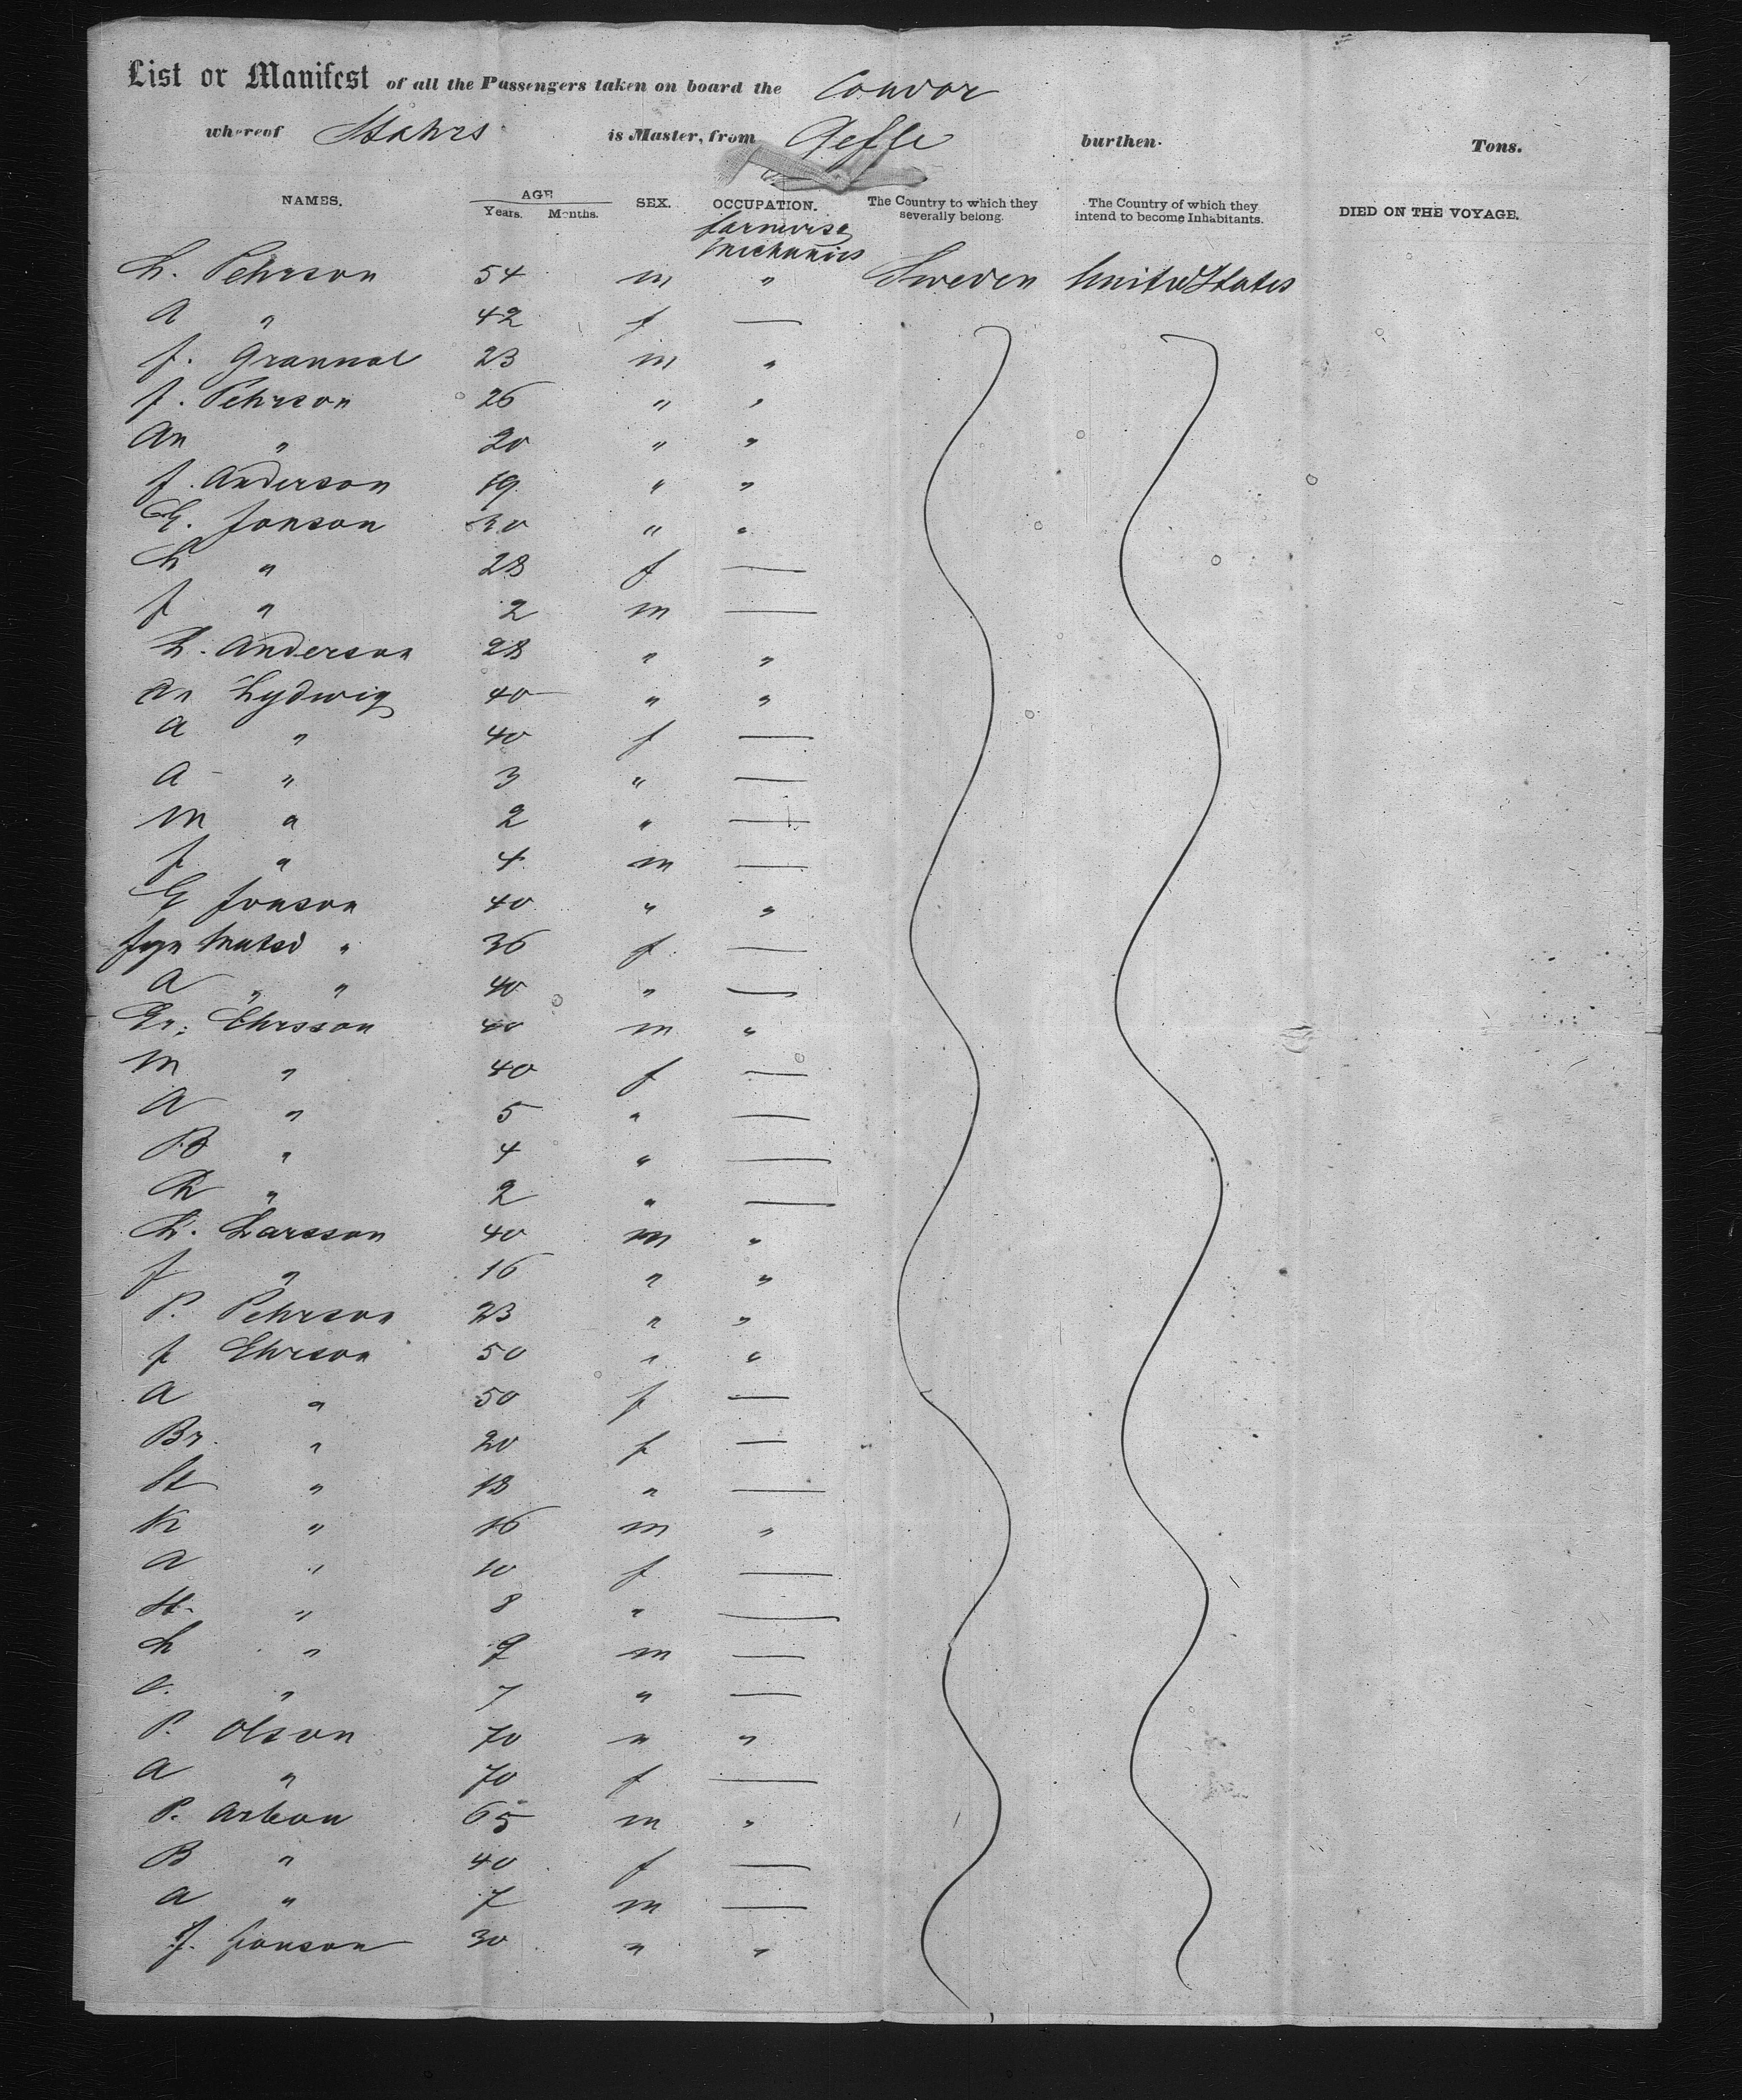 List or Manifest of all the Passengers taken on board the Condor
whereof Stahrs is Master, from Gefle burthen Tons.
NAMES. AGE Years. Months. SEX. OCCUPATION. The Country to which they severally belong. The Country of which they intend to become Inhabitants. DIED ON THE VOYAGE.
farmers &
mechanics
L. Pehrson 54 m " Sweden United States
A " 42 f —
J. Grannal 23 m "
J. Pehrson 26 " "
An " 20 " "
J. Anderson 19 " "
G. Jonson 30 " "
L " 28 f —
J " 2 m —
L. Anderson 28 " "
An Lydwig 40 " "
A " 40 f —
A " 3 " —
M " 2 " —
J " 4 m —
G Jonson 40 " "
" 36 f —
A " " 40 " —
Er. Ehrsson 40 m "
M " 40 f —
A " 5 " —
B " 4 " —
" 2 " —
L. Larsson 40 m "
J " 16 " "
P. Pehrson 23 " "
J Ehrson 50 " "
A " 50 f —
Br. " 20 f —
" 18 " —
K " 16 m "
A " 10 f —
" 8 " —
L " 9 m —
" 7 " —
P. Olson 70 " "
A " 70 f —
P. 65 m "
B " 40 f —
A " 7 m —
J. Jonson 30 " "